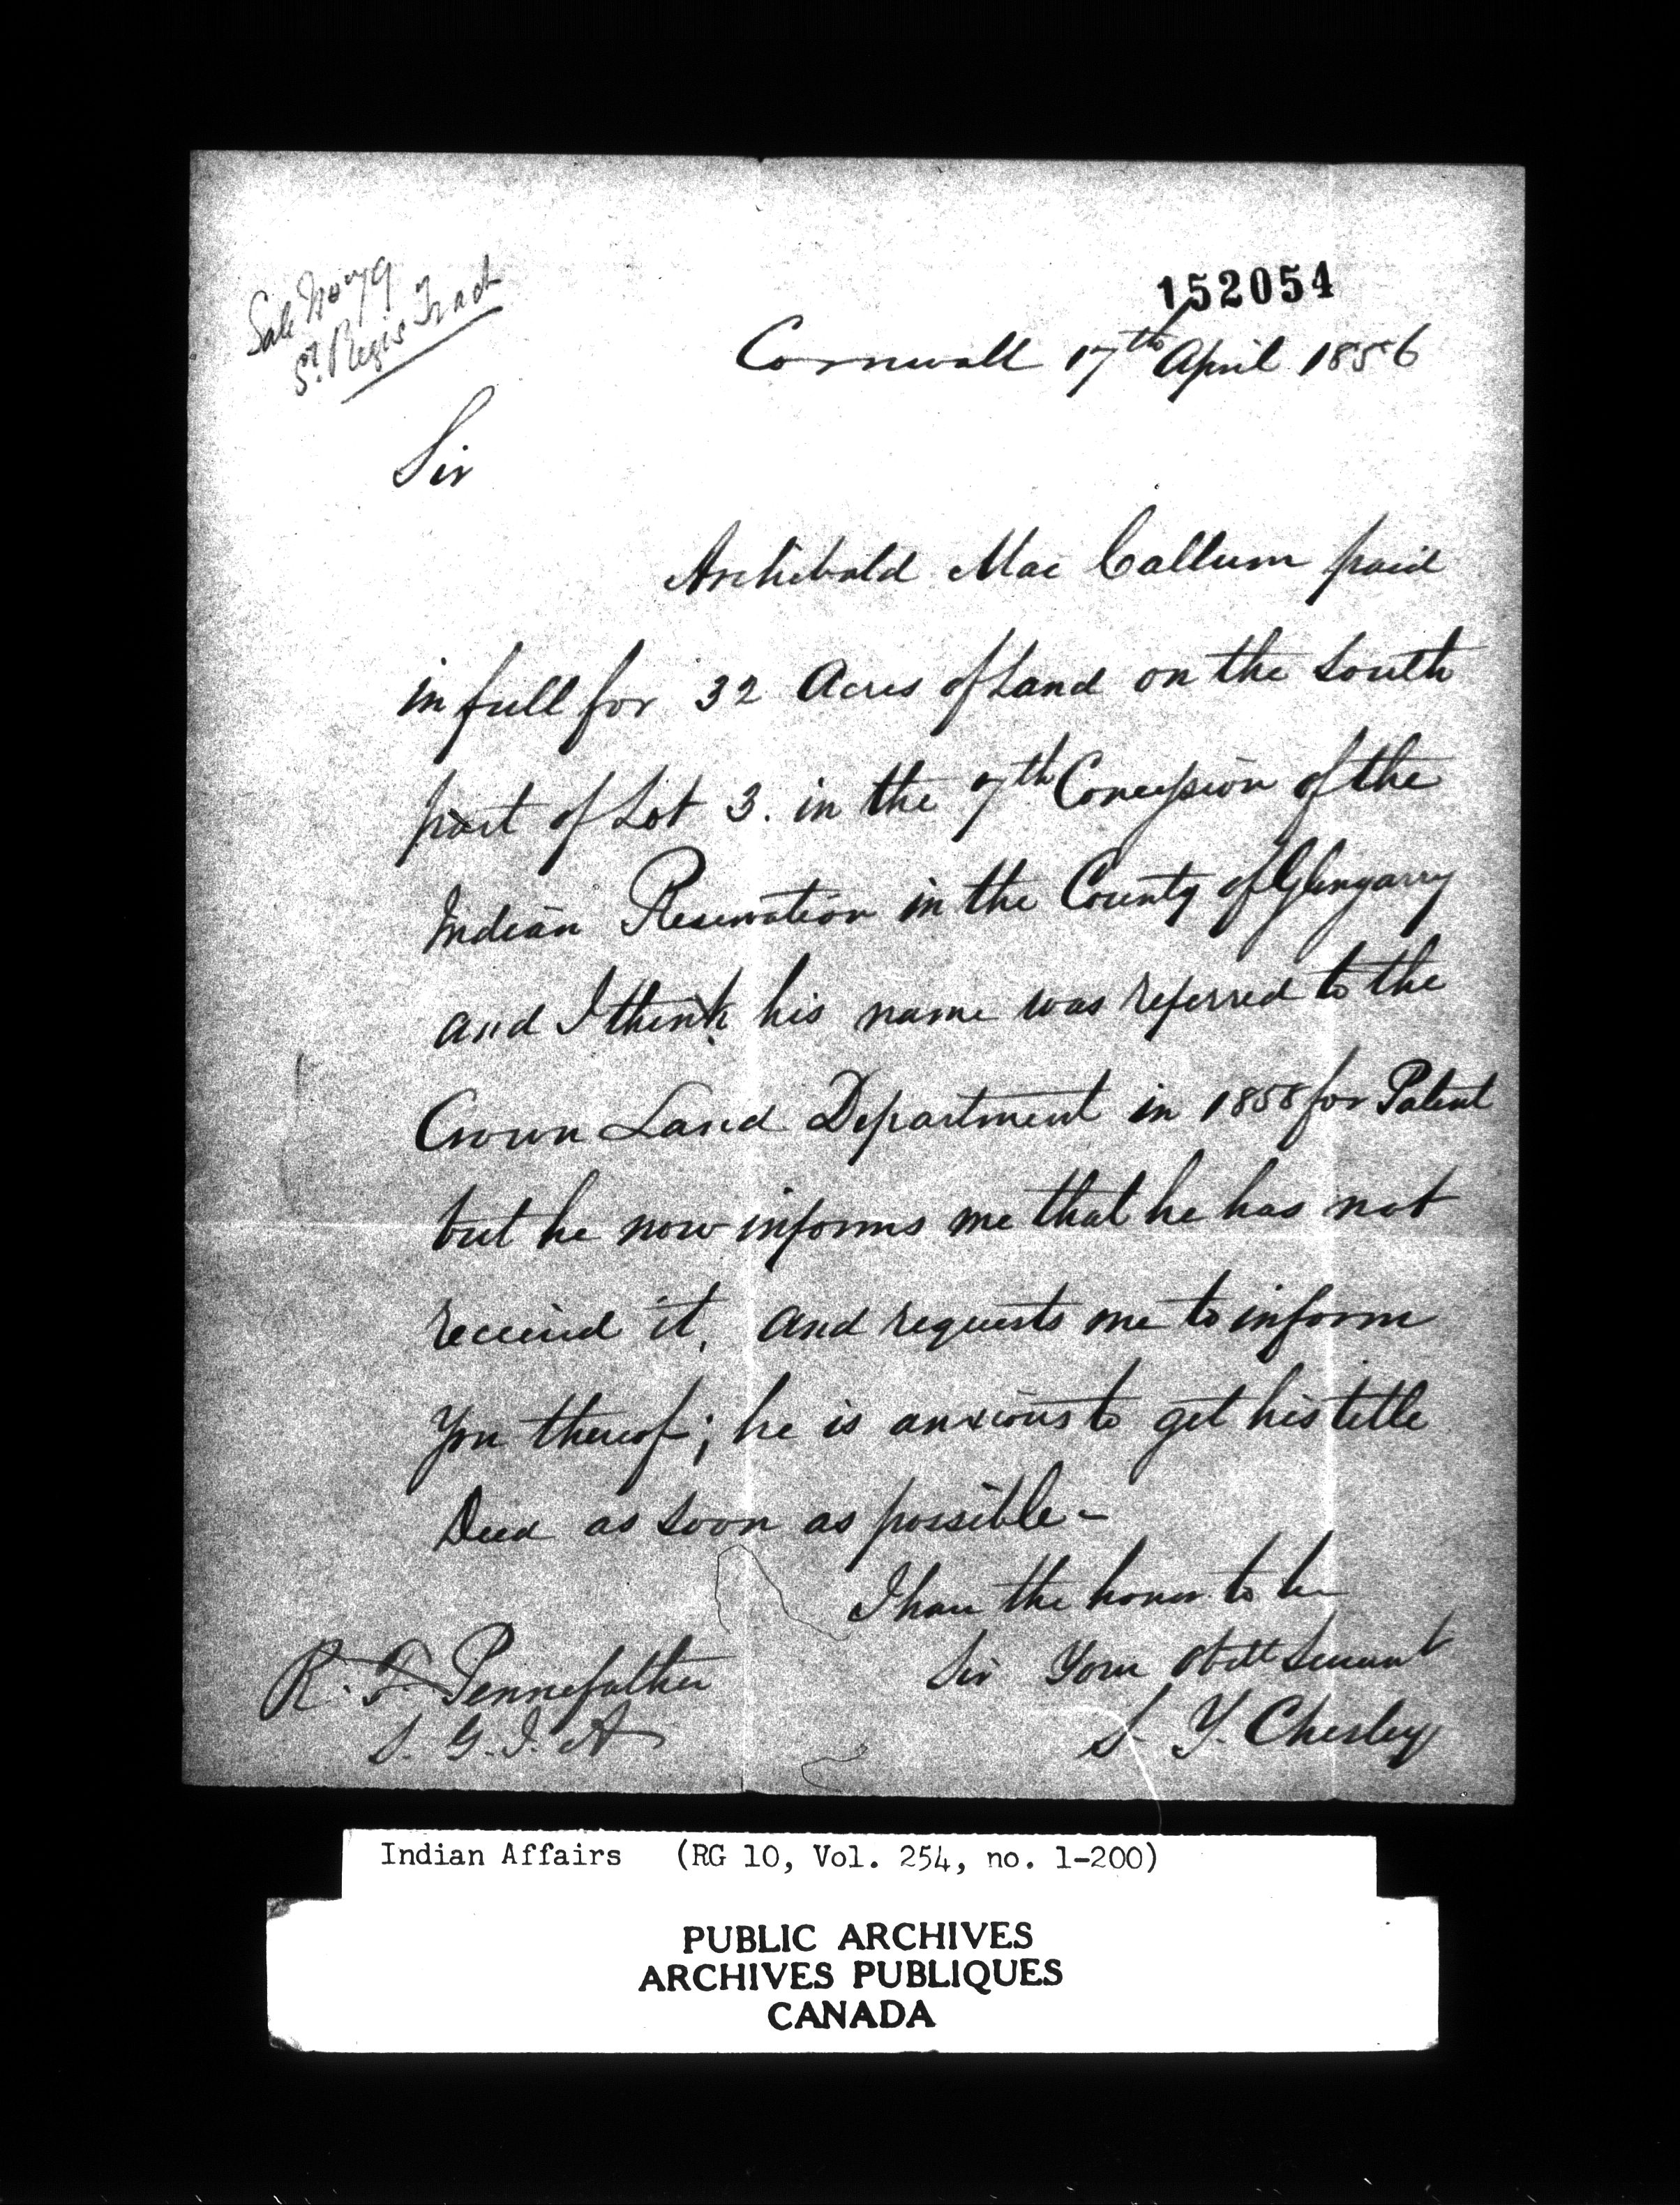 Sale No 79
St. Regis Tract
152054
Cornwall 17th April 1856
Sir
Archibald Mac Callum paid
in full for 32 Acres of Land on the South
part of Lot 3. in the 7th Concession of the
Indian Reservation in the County of Glengarry
and I think his name was referred to the
Crown Land Department in 1858 for Patent
but he now informs me that he has not
received it, and requests me to inform
You thereof; he is anxious to get his title
Deed as soon as possible -
I have the honor to be
Sir Your Obdt Servant
S. Y. Chesley
R. T. Pennefather
S. G. I. A
Indian Affairs (RG 10, Vol. 254, no. 1-200)
PUBLIC ARCHIVES
ARCHIVES PUBLIQUES
CANADA